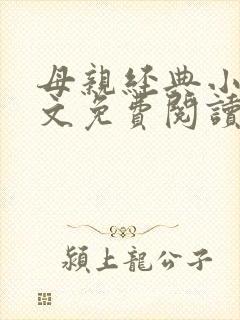 母親經典小
文免費閱讀
潁上龍公子